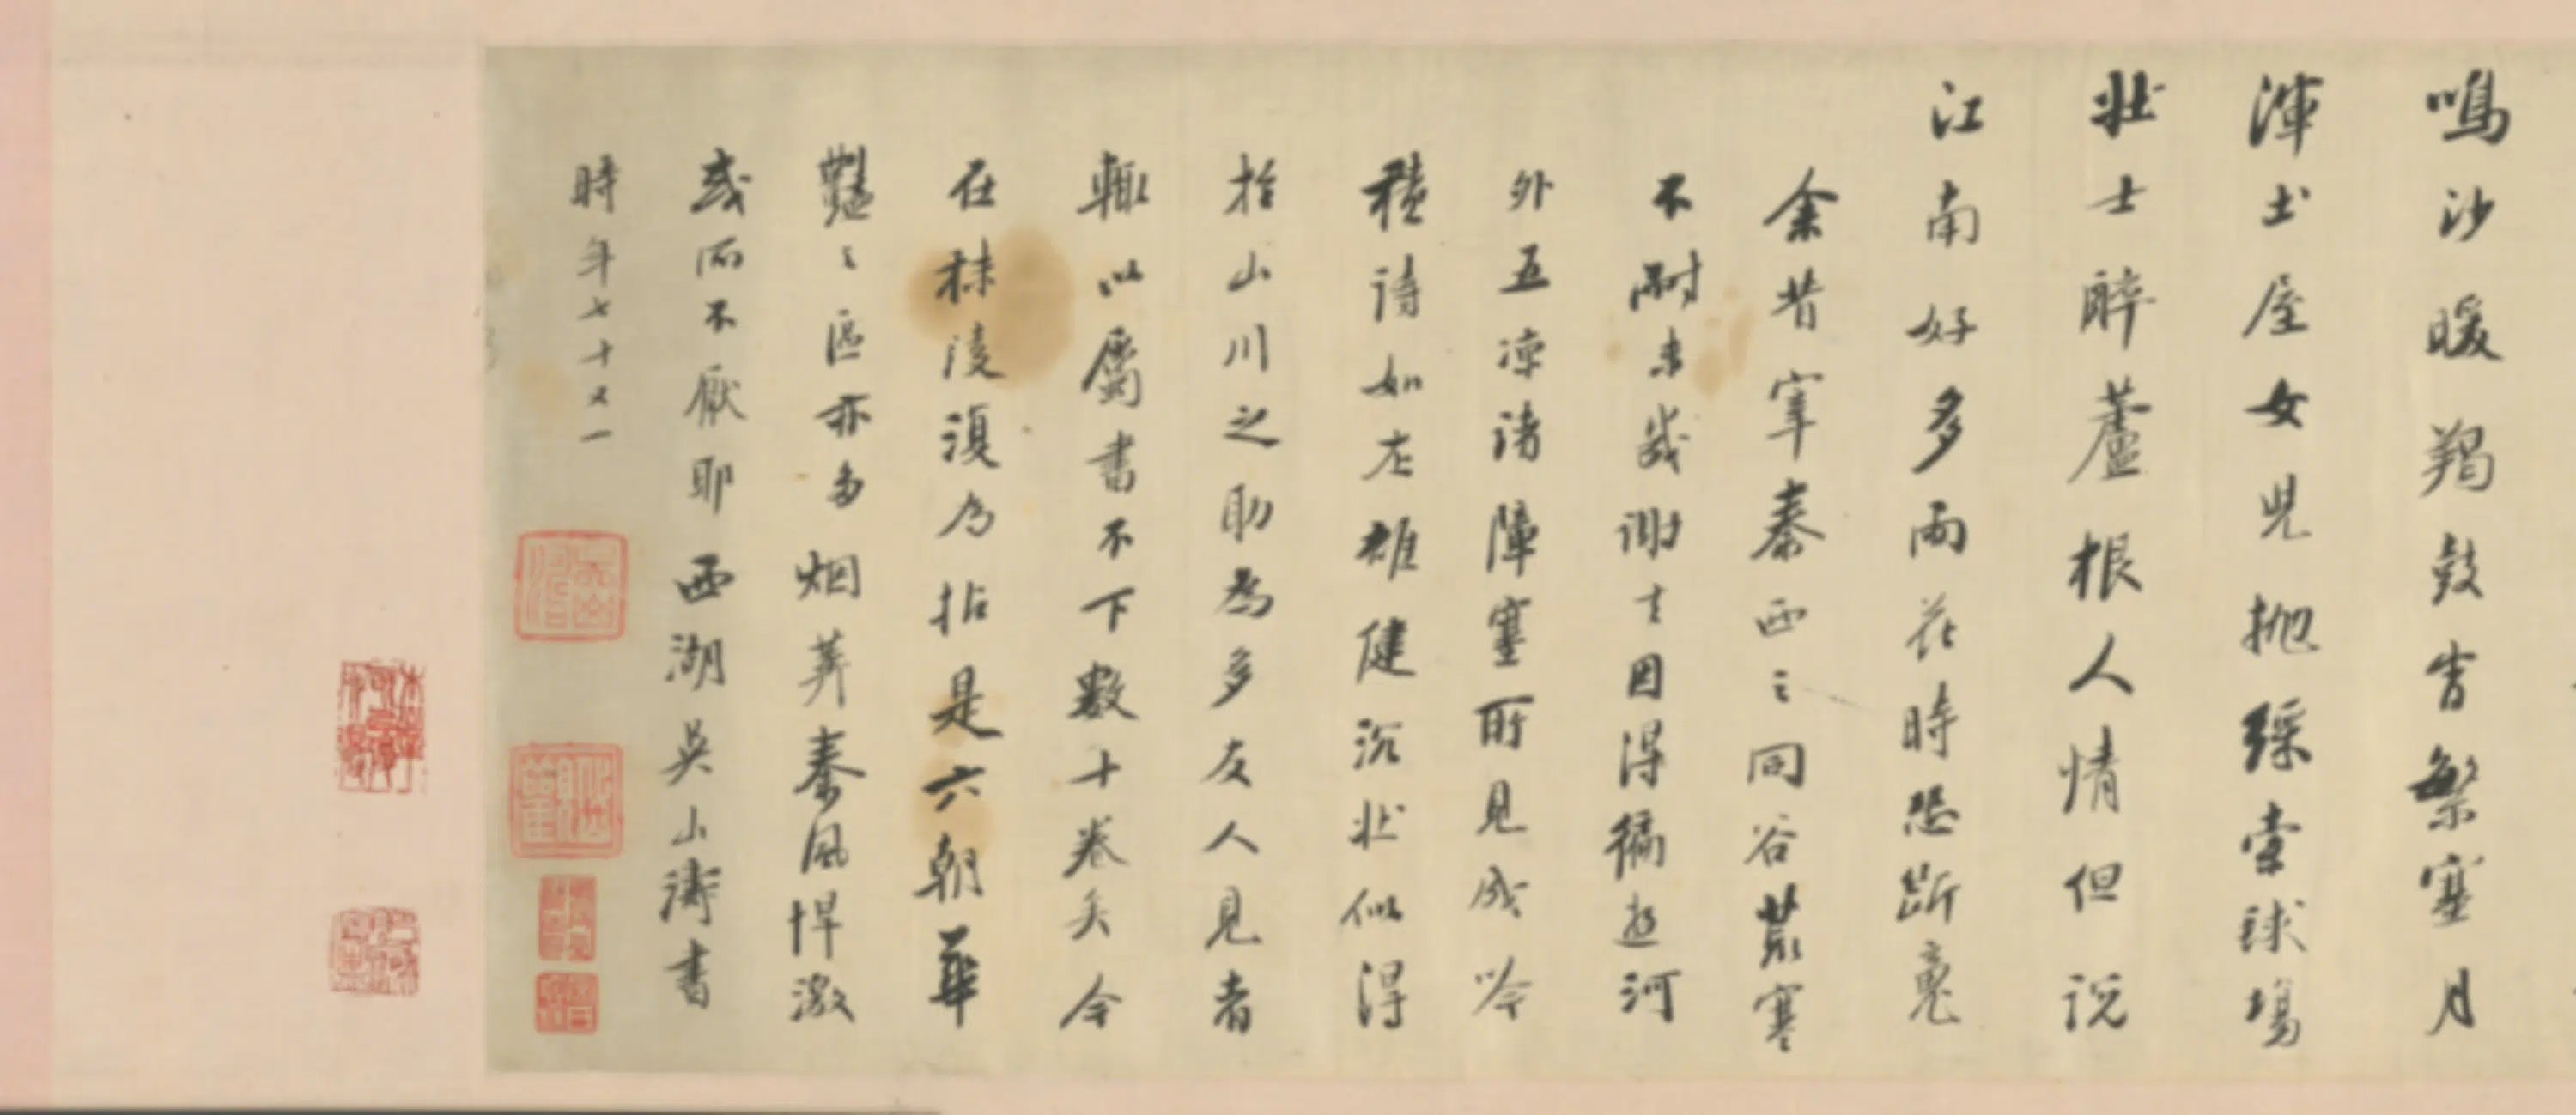 鳴沙暖羯鼓吉繁塞月
渾土屋女兒抛綵索毬場
壯士醉蘆根人情但說
江南好多雨花時恐斷魂
余昔宰秦西之同谷荒寒
不耐未歲謝去因得徧遊河
外五涼諸障塞所見成吟
積詩如左雄健沉壯似得
於山川之助為多友人見者
輒以屬書不下數十卷矣今
在秣陵復為拈是六朝華
豔之區亦多烟莽秦風悍激
或所不厭耶西湖吳山濤書
時年七十又一